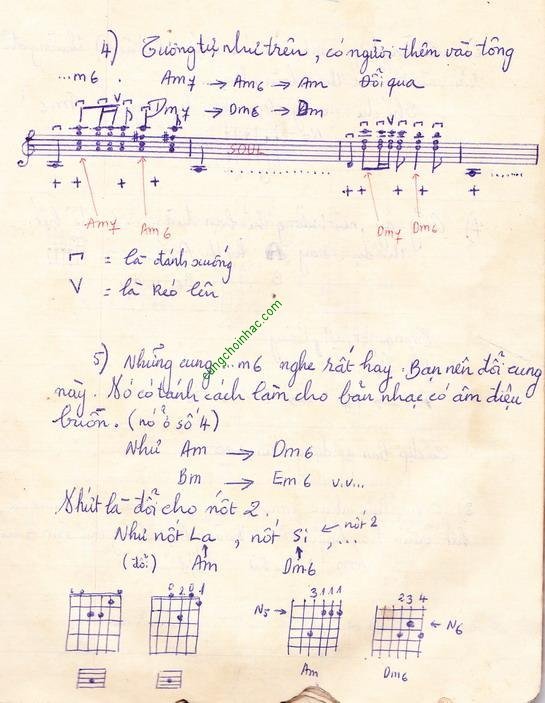 4) Tương tự như trên, có người thêm vào tông
...m6. Am7 → Am6 → Am Đổi qua
Dm7 → Dm6 → Dm
SOUL
+ + + + + + + + +
Am7 Am6 Dm7 Dm6
= là đánh xuống
V = là Kéo lên
cungchoinhac.com
5) Những cung ...m6 nghe rất hay. Bạn nên đổi cung
này. Nó có tánh cách làm cho bản nhạc có âm điệu
buồn. (nó ở số 4)
Như Am → Dm6
Bm → Em6 v.v...
Nhứt là đổi cho nốt 2.
Như nốt La, nốt Si ← nốt 2, ...
(đổi) Am Dm6
0 2 0 1
3 1 1 1
2 3 4
N5 →
← N6
Am Dm6